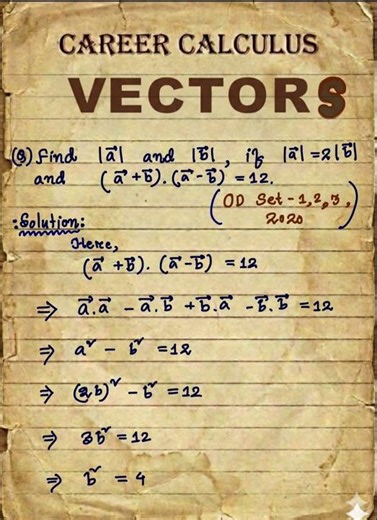 CAREER CALCULUS
VECTORS
(Q) Find |a⃗| and |b⃗|, if |a⃗| = 2|b⃗|
and (a⃗ + b⃗).(a⃗ - b⃗) = 12.
(OD Set - 1,2,3,
2020)
:Solution:
Here,
(a⃗ + b⃗). (a⃗ - b⃗) = 12
⇒ a⃗.a⃗ - a⃗.b⃗ + b⃗.a⃗ - b⃗.b⃗ = 12
⇒ a² - b² = 12
⇒ (2b)² - b² = 12
⇒ 3b² = 12
⇒ b² = 4